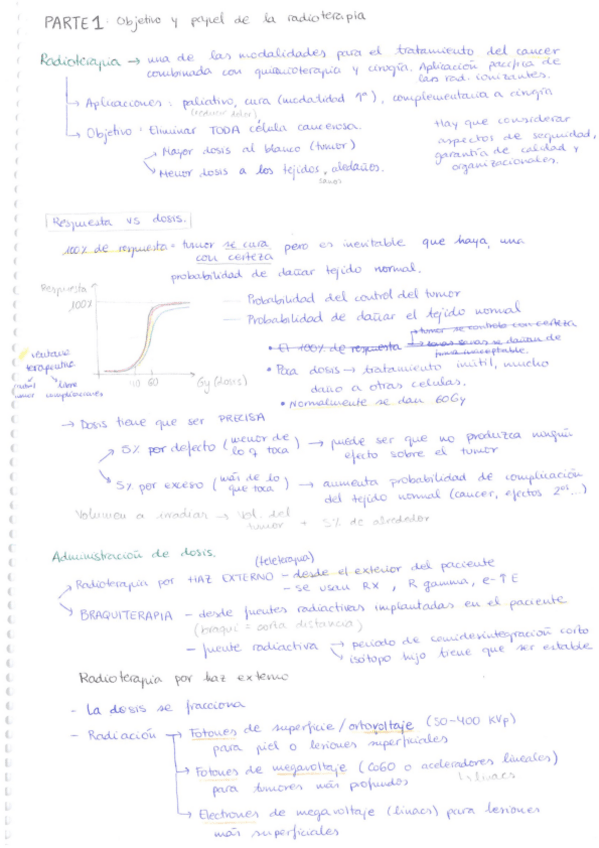 PARTE 1. Objetivo y papel de la radioterapia
Radioterapia → una de las modalidades para el tratamiento del cancer
combinada con quimioterapia y cirugía. Aplicación pacífica de
las rad. ionizantes.
→ Aplicaciones: paliativo, cura (modalidad 1ª), complementaria a cirugía
(reducir dolor)
→ Objetivo: Eliminar TODA célula cancerosa.
Mayor dosis al blanco (tumor)
Menor dosis a los tejidos aledaños.
sanos
Hay que considerar
aspectos de seguridad,
garantía de calidad y
organizacionales.
Respuesta vs dosis.
100% de respuesta = tumor se cura pero es inevitable que haya una
con certeza
probabilidad de dañar tejido normal.
Respuesta
100%
40 60 Gy (dosis)
— Probabilidad del control del tumor
— Probabilidad de dañar el tejido normal
• El 100% de respuesta → tumor se controla con certeza
• Poca dosis → tratamiento inútil, mucho
daño a otras celulas.
• Normalmente se dan 60Gy
ventana
terapeutica
tumor libre complicaciones
→ Dosis tiene que ser PRECISA
5% por defecto (menor de lo q toca) → puede ser que no produzca ningún
efecto sobre el tumor
5% por exceso (más de lo que toca) → aumenta probabilidad de complicación
del tejido normal (cancer, efectos 2os...)
Volumen a irradiar → Vol. del tumor + 5% de alrededor
Administración de dosis.
(teleterapia)
Radioterapia por HAZ EXTERNO – desde el exterior del paciente
– se usan RX, R gamma, e- ↑E
BRAQUITERAPIA – desde fuentes radiactivas implantadas en el paciente
(braqui = corta distancia)
– fuente radiactiva → periodo de semidesintegración corto
isótopo hijo tiene que ser estable
Radioterapia por haz externo
- La dosis se fracciona
- Radiación → Fotones de superficie/ortovoltaje (50-400 KVp)
para piel o lesiones superficiales
→ Fotones de megavoltaje (Co60 o aceleradores lineales)
para tumores más profundos ↳ linacs
→ Electrones de megavoltaje (linacs) para lesiones
más superficiales